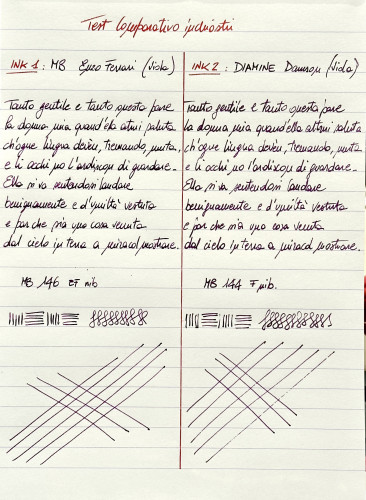 Test comparativo inchiostri
INK 1: MB Enzo Ferrari (Viola)
Tanto gentile e tanto onesta pare
la donna mia quand'ella altrui saluta
ch'ogne lingua deven, tremando, muta,
e li occhi no l'ardiscon di guardare.
Ella si va sentendosi laudare
benignamente e d'umiltà vestuta
e par che sia una cosa venuta
dal cielo in terra a miracol mostrare.
MB 146 EF nib
INK 2: DIAMINE Damson (Viola)
Tanto gentile e tanto onesta pare
la donna mia quand'ella altrui saluta
ch'ogne lingua deven, tremando, muta,
e li occhi no l'ardiscon di guardare.
Ella si va sentendosi laudare
benignamente e d'umiltà vestuta
e par che sia una cosa venuta
dal cielo in terra a miracol mostrare.
MB 144 F nib.